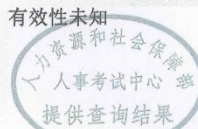 有效性未知
人力资源和社会保障部
人事考试中心
提供查询结果